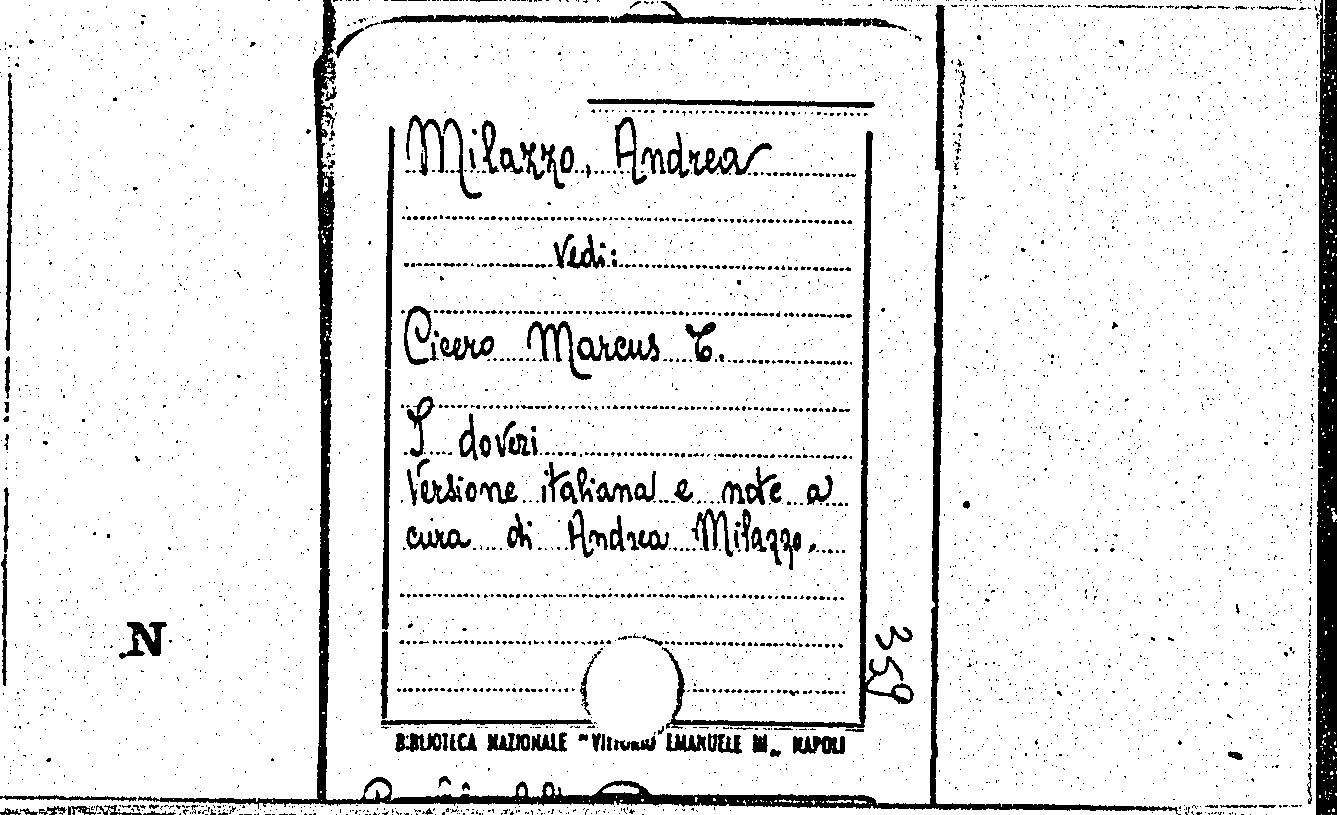 Milazzo, Andrea
Vedi:
Cicero Marcus T.
I doveri
Versione italiana e note a
cura di Andrea Milazzo.
359
N
BIBLIOTECA NAZIONALE "VITTORIO EMANUELE III„ NAPOLI